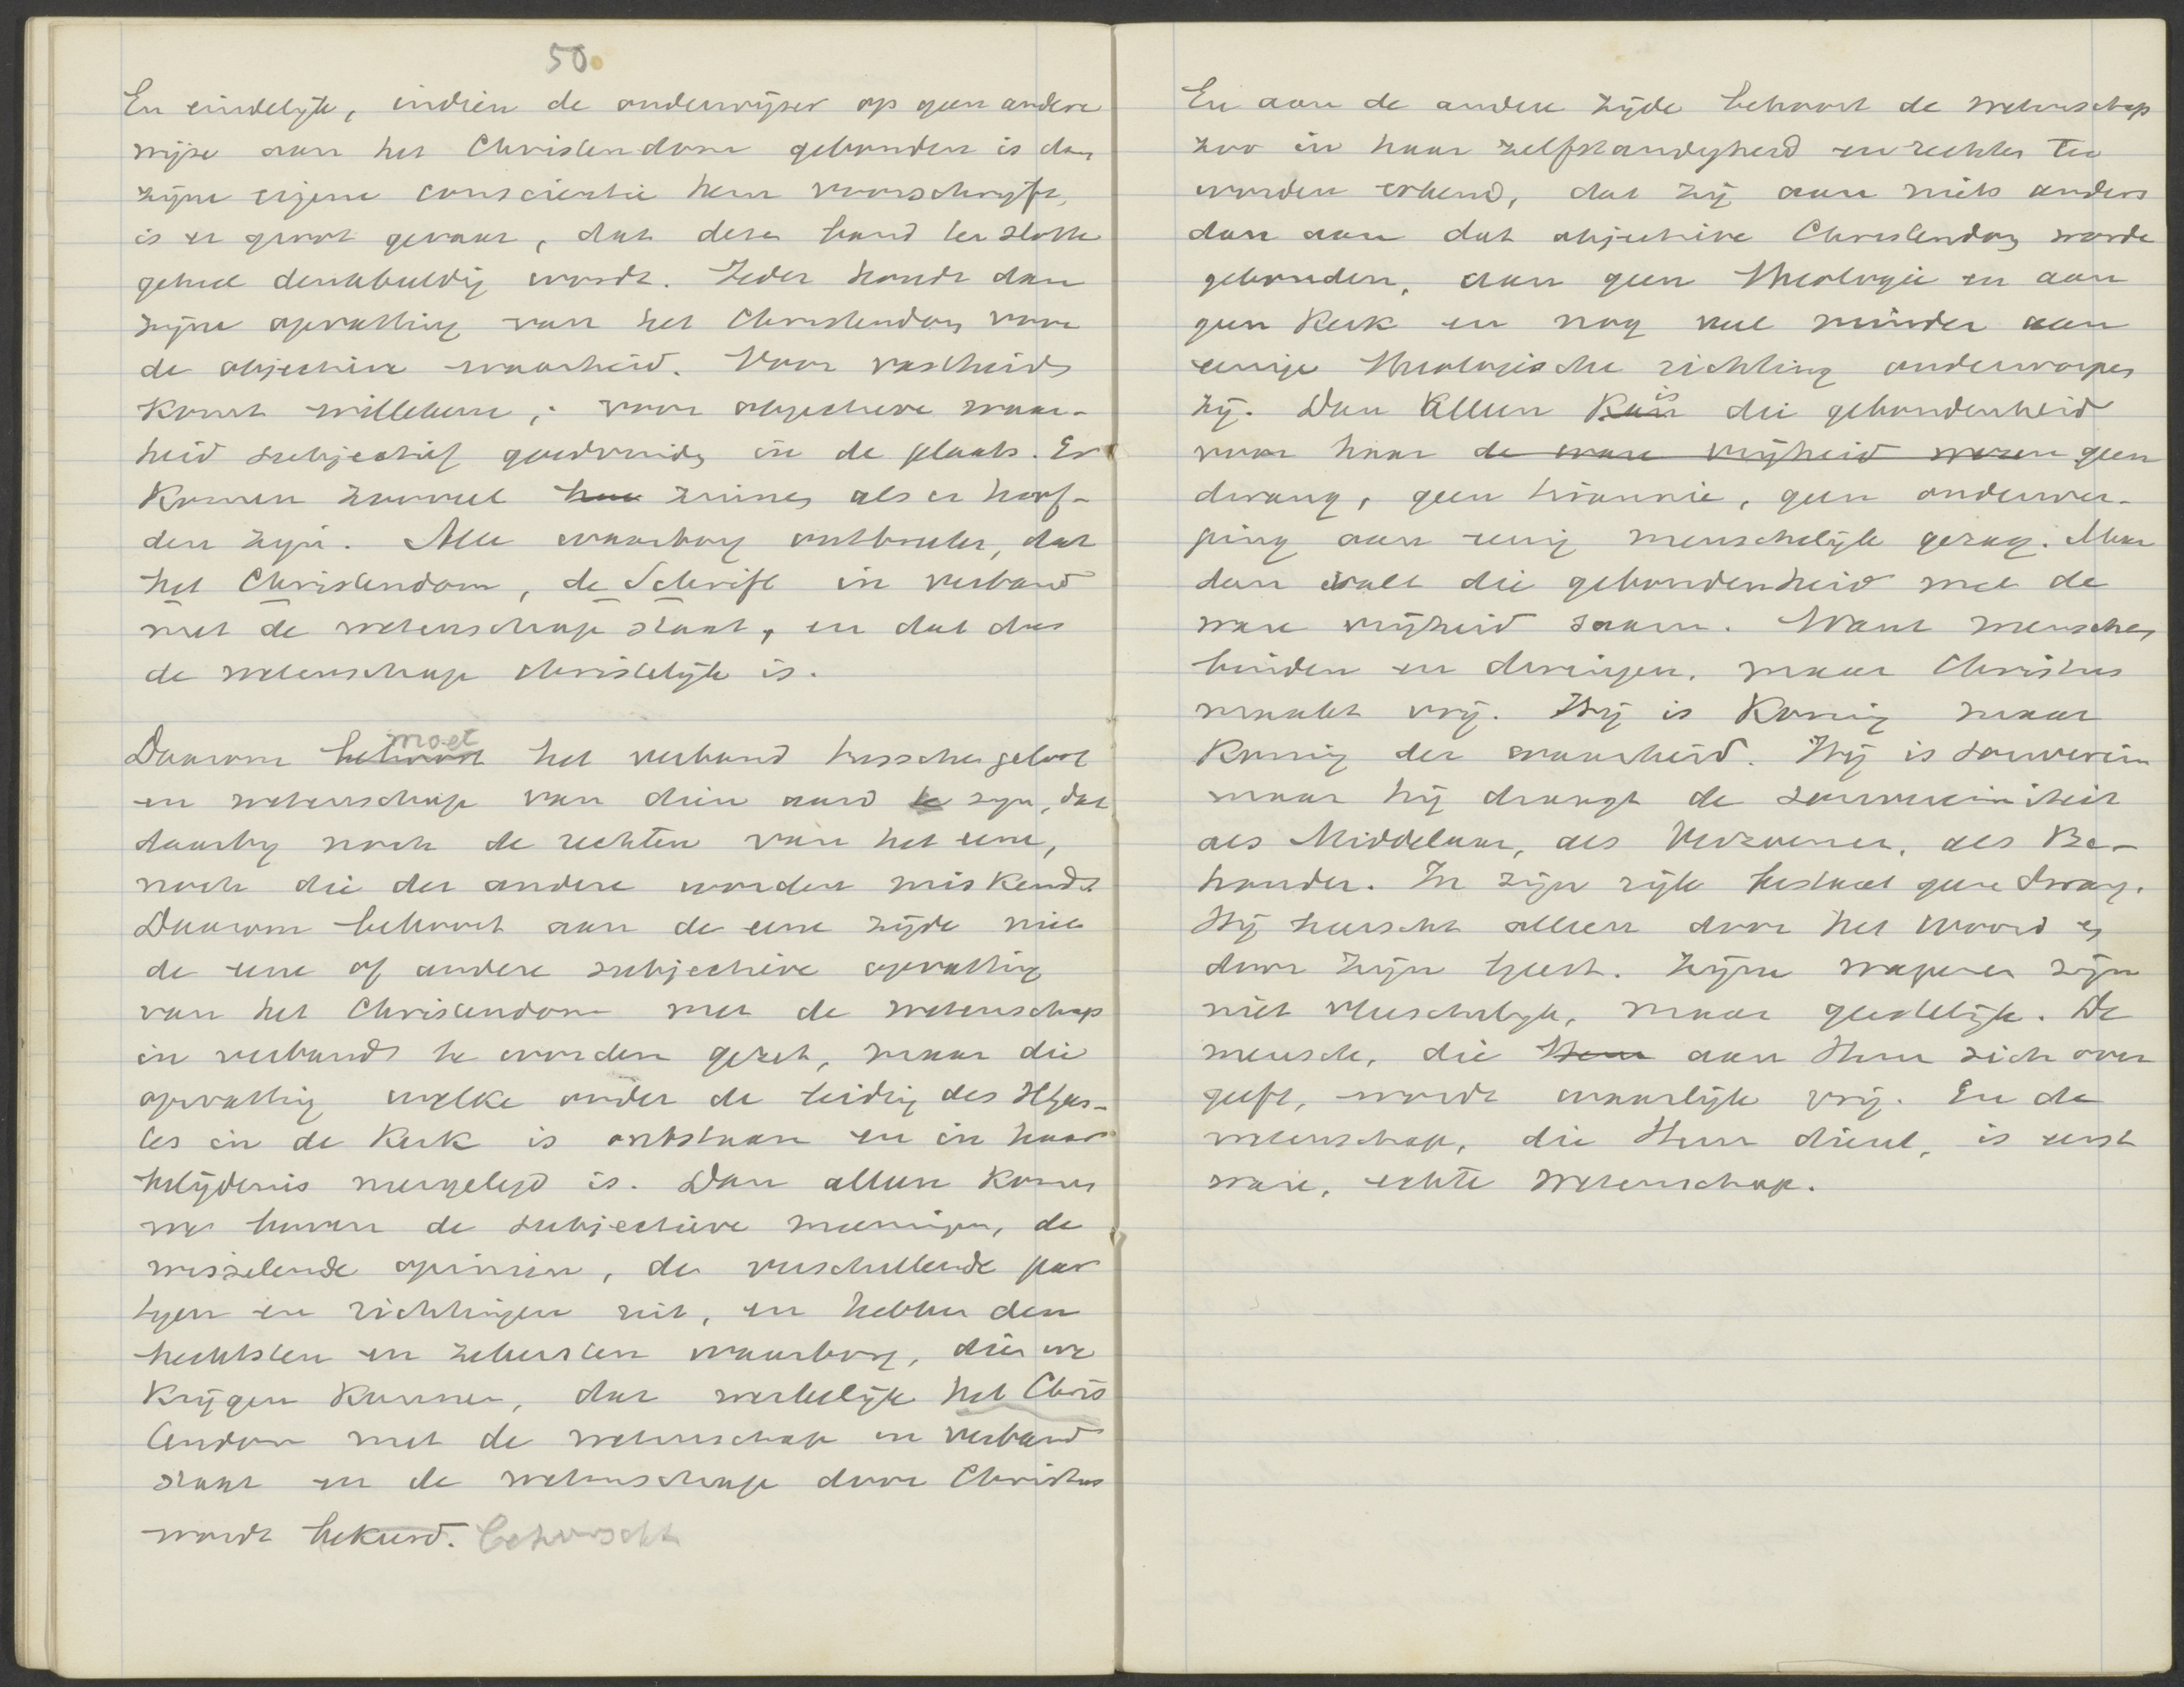 50.
En eindelijk, indien de onderwijzer op geen andere
wijze aan het Christendom gebonden is dan
zijne eigene conscientie hem voorschrijft,
is er groot gevaar, dat deze band ten slotte
geheel denkbeeldig wordt. Ieder houdt dan
zijne opvatting van het Christendom voor
de objectieve waarheid. Voor vastheid
komt willekeur, voor objectieve waar-
heid subjectief goedvinden in de plaats. Er
komen zooveel zinnen als er hoof-
den zijn. Alle waarborg ontbreekt, dat
het Christendom, de Schrift in verband
met de wetenschap staat, en dat dus
de wetenschap christelijk is.
Daarom behoort moet het verband tusschen geloof
en wetenschap van dien aard te zijn, dat
daarby noch de rechten van het eene,
noch die der andere worden miskend.
Daarom behoort aan de eene zijde niet
de eene of andere subjectieve opvatting
van het Christendom met de wetenschap
in verband te worden gezet, maar die
opvatting welke onder de leiding des HGees-
tes in de Kerk is ontstaan en in haar
belijdenis neergelegd is. Dan alleen komen
we boven de subjectieve meeningen, de
wisselende opiniën, de verschillende par
tyen en richtingen uit, en hebben den
hechtsten en zekersten waarborg, dien we
krijgen kunnen, dat werkelijk het Chris
tendom met de wetenschap in verband
staat en de wetenschap door Christus
wordt bekeerd. beheerscht
En aan de andere zijde behoort de wetenschap
zoo in haar zelfstandigheid en rechten te
worden erkend, dat zij aan niets anders
dan aan dat objectieve Christendom worde
gebonden, aan geen theologie en aan
geen Kerk en nog veel minder aan
eenige theologische richting onderworpen
zij. Dan alleen kan is die gebondenheid
voor haar de ware vrijheid wezen geen
dwang, geen tirannie, geen onderwer-
ping aan eenig menschelijk gezag. Maar
dan valt die gebondenheid met de
ware vrijheid saam. Want menschen
binden en dwingen, maar Christus
maakt vrij. Hij is Koning maar
Koning der waarheid. Hij is souverein
maar hij draagt de souvereiniteit
als Middelaar, als Verzoener, als Be-
houder. In zijn rijk bestaat geen dwang.
Hij heerscht alleen door het Woord en
door Zijn Geest. Zijne wapenen zijn
niet vleeschelijk, maar geestelijk. De
mensch, die Hem aan Hem zich over
geeft, wordt waarlijk vrij. En de
wetenschap, die Hem dient, is eerst
ware, echte wetenschap.